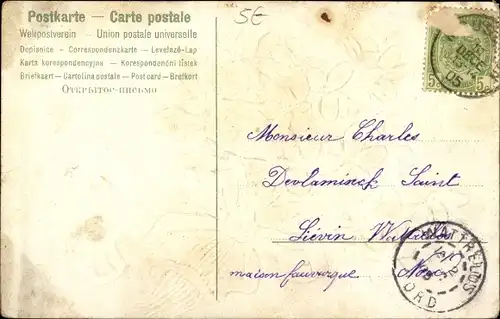 Postkarte — Carte postale
Weltpostverein — Union postale universelle
Dopisnice — Correspondenzkarte — Levelező-Lap
Karta korespondencyjna — Korespondenční lístek
Briefkaart — Cartolina postale — Post card — Brefkort
Открытое письмо
5€
DEC
05
5c
5c
Monsieur Charles
Devlaminck Saint
Liévin Wattrelos
maison fauvergue Nord
WATTRELOS
NORD